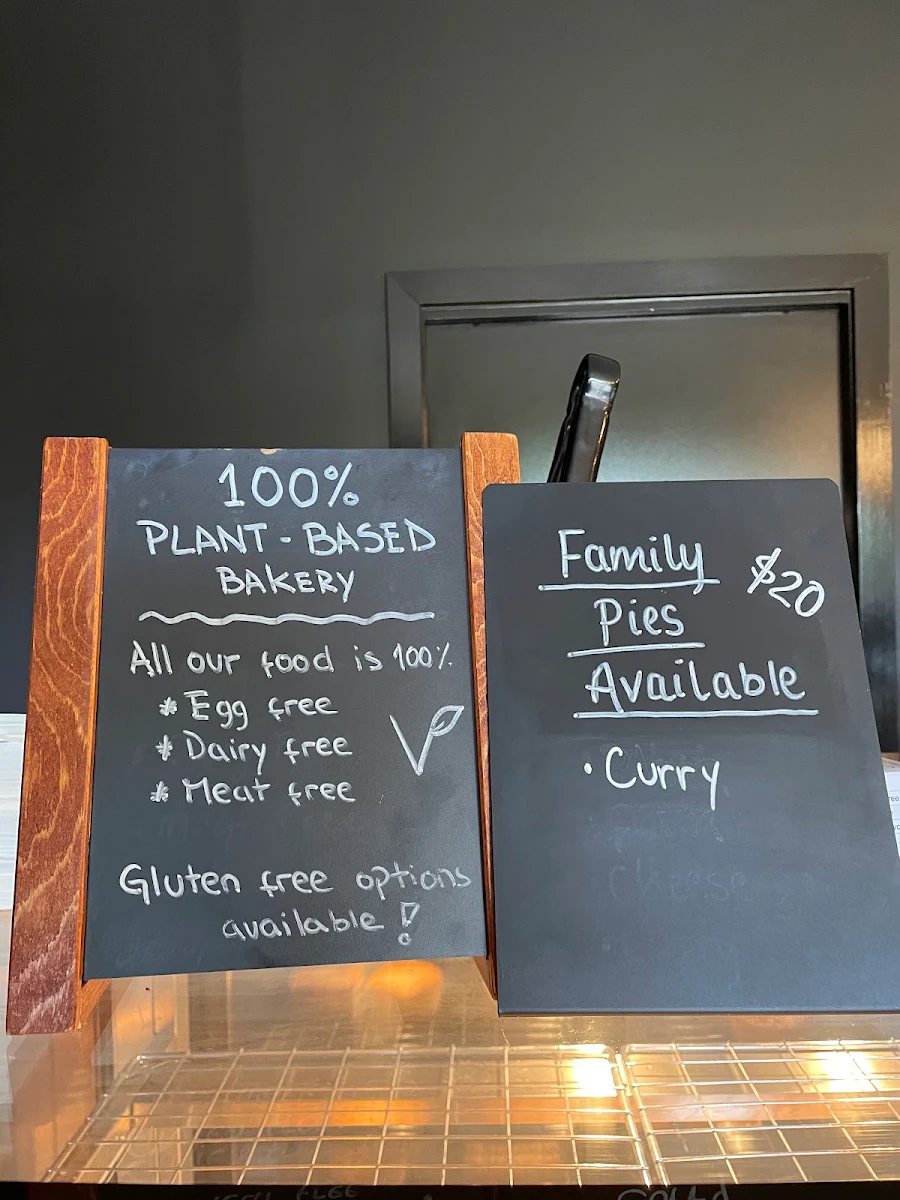 100%
PLANT-BASED
BAKERY
All our food is 100%
* Egg free
* Dairy free
* Meat free
Gluten free options
available!
Family
Pies
Available
$20
• Curry